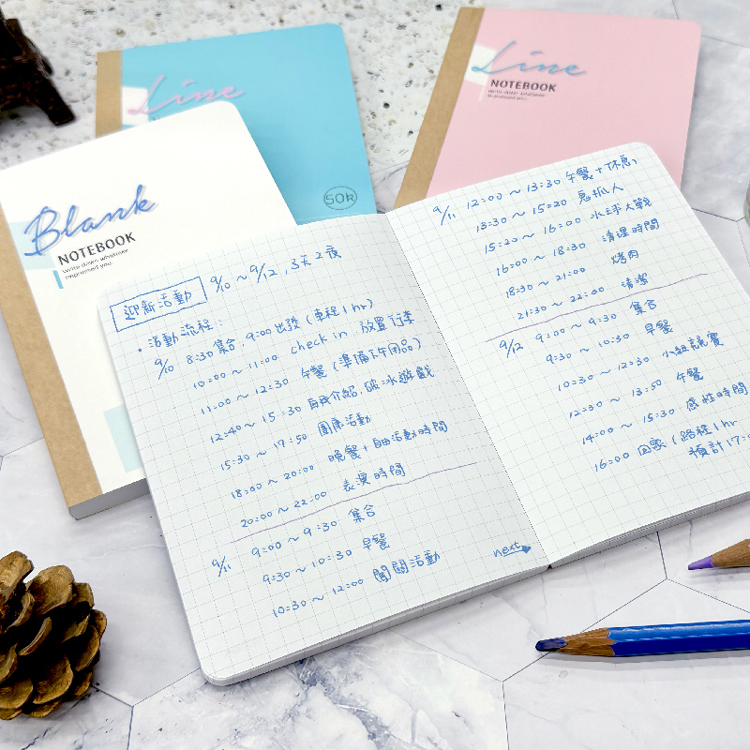 Line
Line
NOTEBOOK
Write down whatever
impressed you.
50K
Blank
NOTEBOOK
Write down whatever
impressed you.
迎新活動 9/10~9/12, 3天2夜
・活動流程:
9/10 8:30 集合, 9:00出發(車程1hr)
10:00~11:00 check in 放置行李
11:00~12:30 午餐(準備下午用品)
12:40~15:30 自我介紹, 破冰遊戲
15:30~17:50 團康活動
18:00~20:00 晚餐+自由活動時間
20:00~22:00 表演時間
9/11 9:00~9:30 集合
9:30~10:30 早餐
10:30~12:00 闖關活動
next
9/11 12:00~13:30 午餐+休息
13:30~15:20 鬼抓人
15:20~16:00 水球大戰
16:00~18:30 清理時間
18:30~21:00 烤肉
21:30~22:00 清潔
9/12 9:00~9:30 集合
9:30~10:30 早餐
10:30~12:30 小組競賽
12:30~13:50 午餐
14:00~15:30 感性時間
16:00 回家(路程1hr
預計17:0